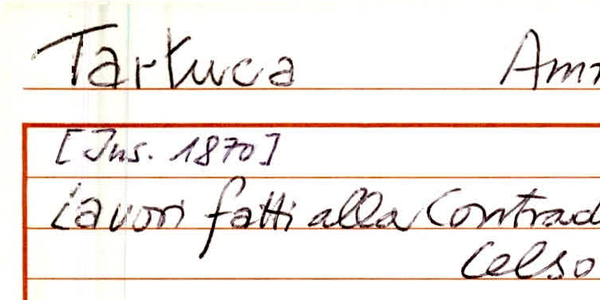 Tartuca Amm
[Ins. 1870]
Lavori fatti alla Contrad
Celso